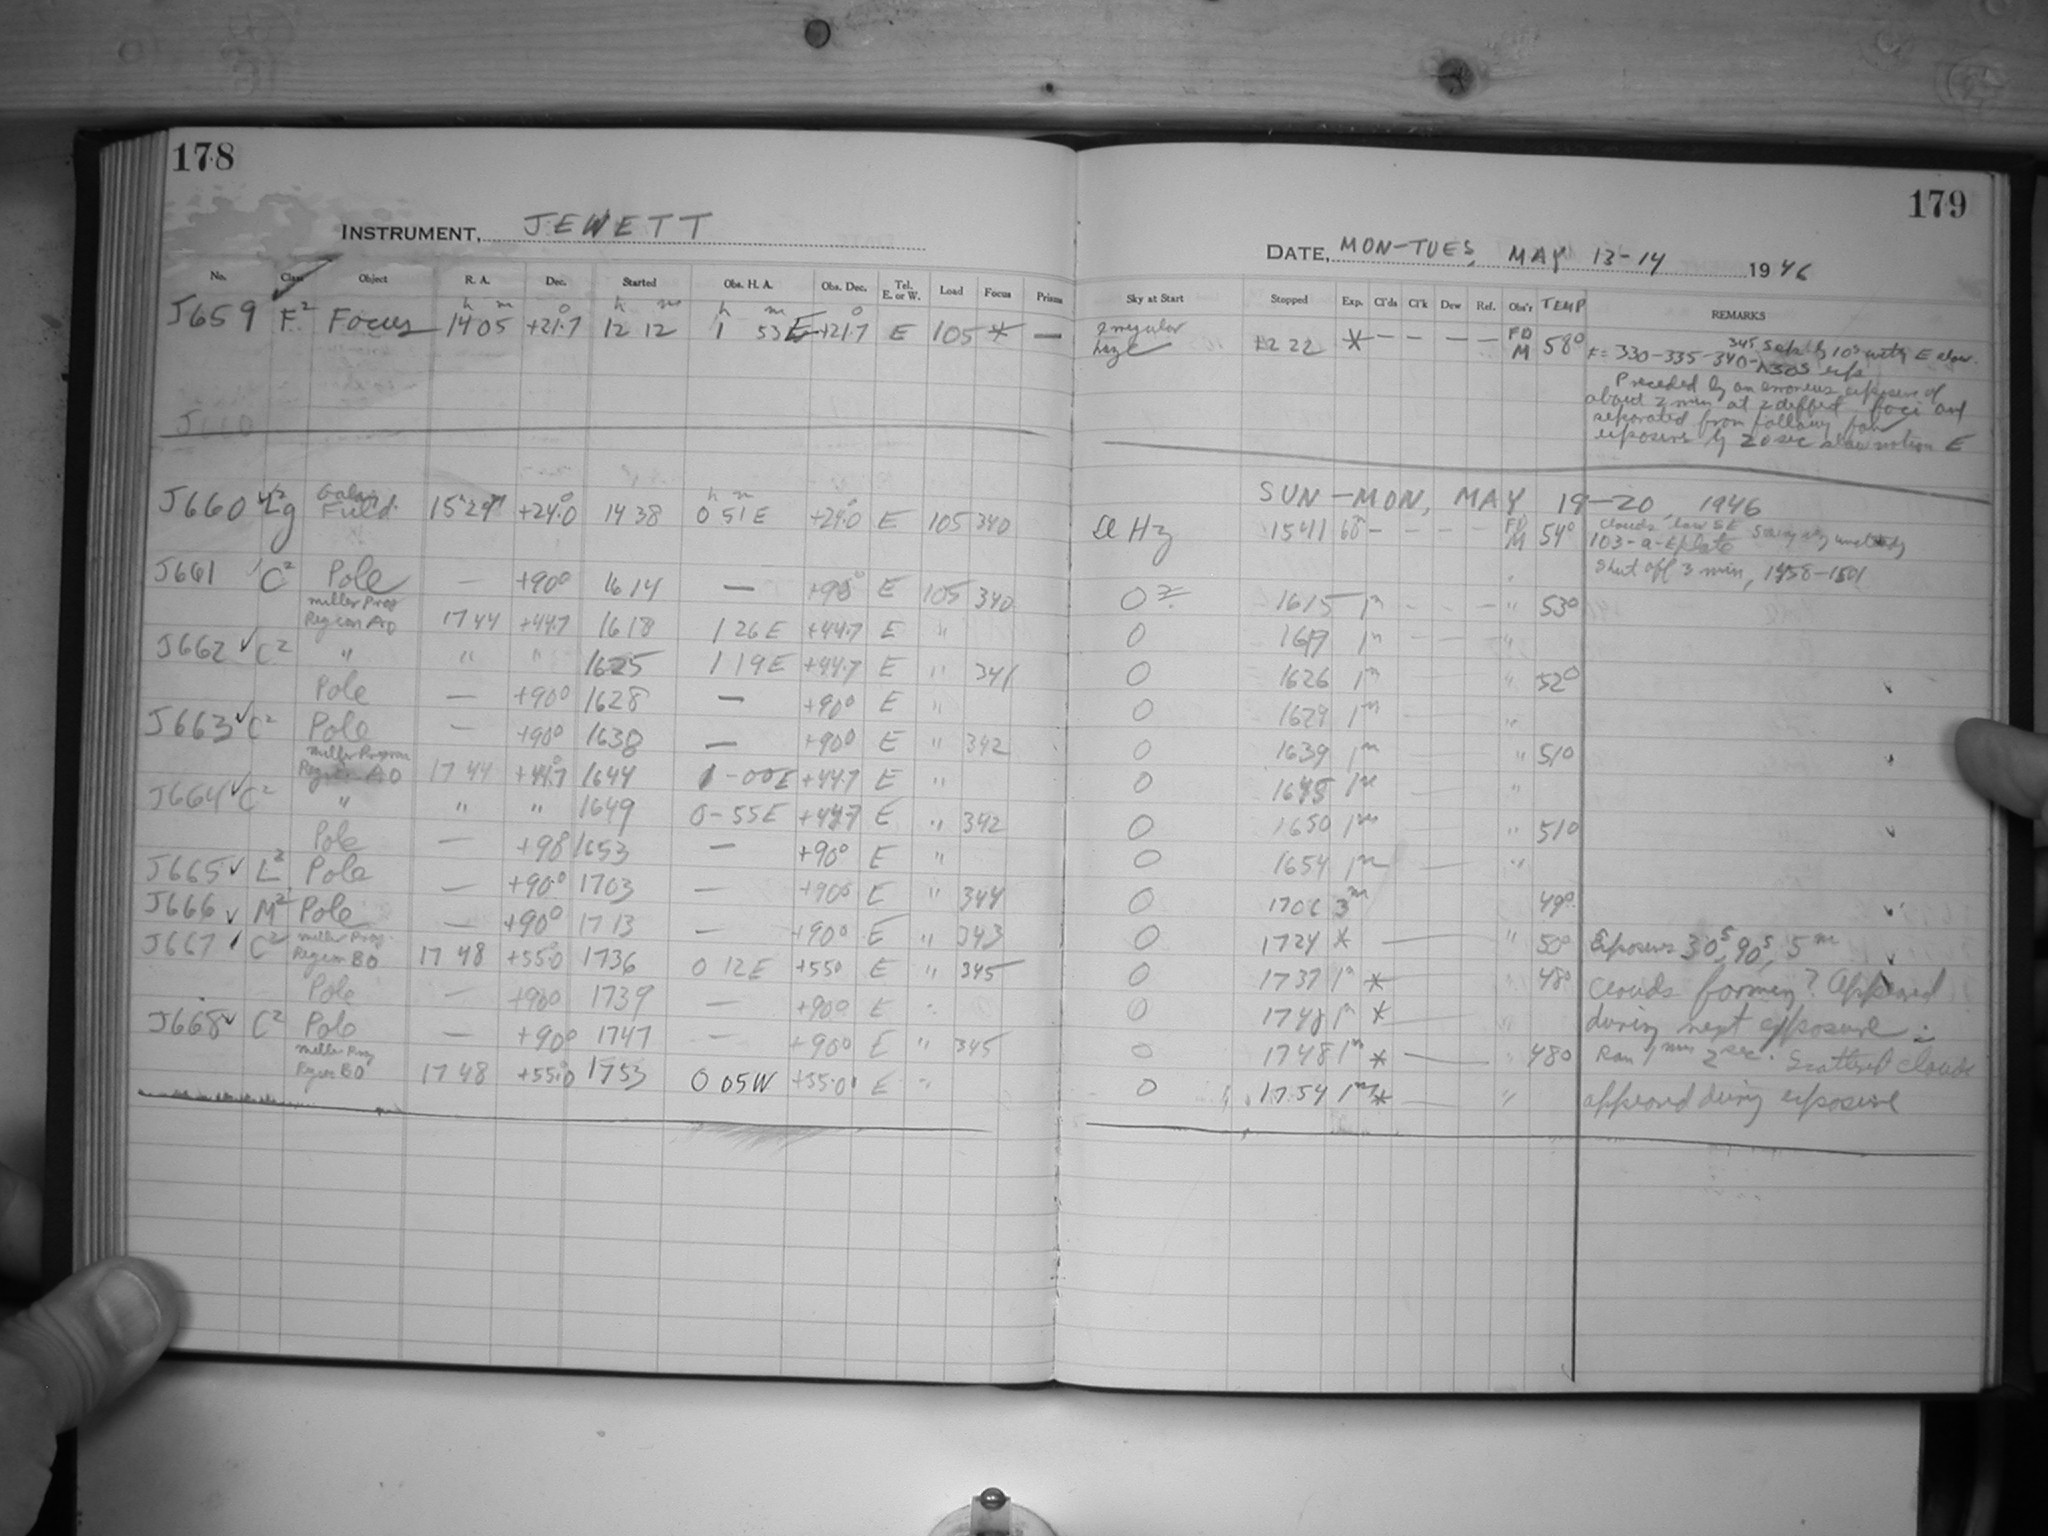 178
INSTRUMENT, JEWETT
No. Class Object R. A. Dec. Started Obs. H. A. Obs. Dec. Tel. E. or W. Load Focus Prism
h m o h m h m o
J659 F² Focus 14 05 +21.7 12 12 1 53 E +21.7 E 105 * —
J660 Field 15 29 +24.0 14 38 0 51 E +24.0 E 105 340
J661 C² Pole — +90° 16 14 — +90° E 105 340
Miller Prog Region A0 17 44 +44.7 16 18 1 26 E +44.7 E "
J662 ✓ C² " " " 1625 1 19 E +44.7 E " 341
Pole — +90° 1628 — +90° E "
J663 ✓ C² Pole — +90° 1638 — +90° E " 342
Miller Program Region A0 17 44 +44.7 1644 1-00E +44.7 E "
J664 ✓ C² " " " 1649 0-55E +44.7 E " 342
Pole — +90 1653 — +90° E "
J665 ✓ L² Pole — +90° 1703 — +90° E " 344
J666 ✓ M² Pole — +90° 1713 — +90° E " 343
J667 C² Miller Prog. Region B0 17 48 +55.0 1736 0 12 E +55.0 E " 345
Pole — +90° 1739 — +90° E "
J668 ✓ C² Pole — +90° 1747 — +90° E " 345
Miller Prog Region B0 17 48 +55.0 1753 0 05W +55.0 E "
179
DATE, MON-TUES, MAY 13-14 1946
Sky at Start Stopped Exp. Cl'ds Cl'k Dew Ref. Obs'r TEMP REMARKS
Irregular haze 12 22 * — — — — FD M 58°
330-335-340-
Preceded by an erroneous exposure of
about 2 min at 2 different foci and
separated from following four
exposures by 20 sec slow motion E
SUN-MON, MAY 19-20, 1946
Sl Hz 1541 60ᵐ — — — — FD M 54° Clouds low SE
103-a-E plate
Shut off 3 min, 1458-1501
0 1615 1ᵐ - - — " 53°
0 1619 1ᵐ "
0 1626 1ᵐ " 52°
0 1629 1ᵐ "
0 1639 1ᵐ " 51°
0 1645 1ᵐ "
0 1650 1ᵐ " 51°
0 1654 1ᵐ "
0 1706 3ᵐ 49°
0 1724 * " 50° Exposures 30ˢ, 90ˢ, 5ᵐ
0 1737 1ᵐ * 48° Clouds forming? Appeared
0 1ᵐ * during next exposure
0 1748 1ᵐ * " 48° Ran 1 min 2 sec. Scattered clouds
0 1754 1ᵐ * " appeared during exposure